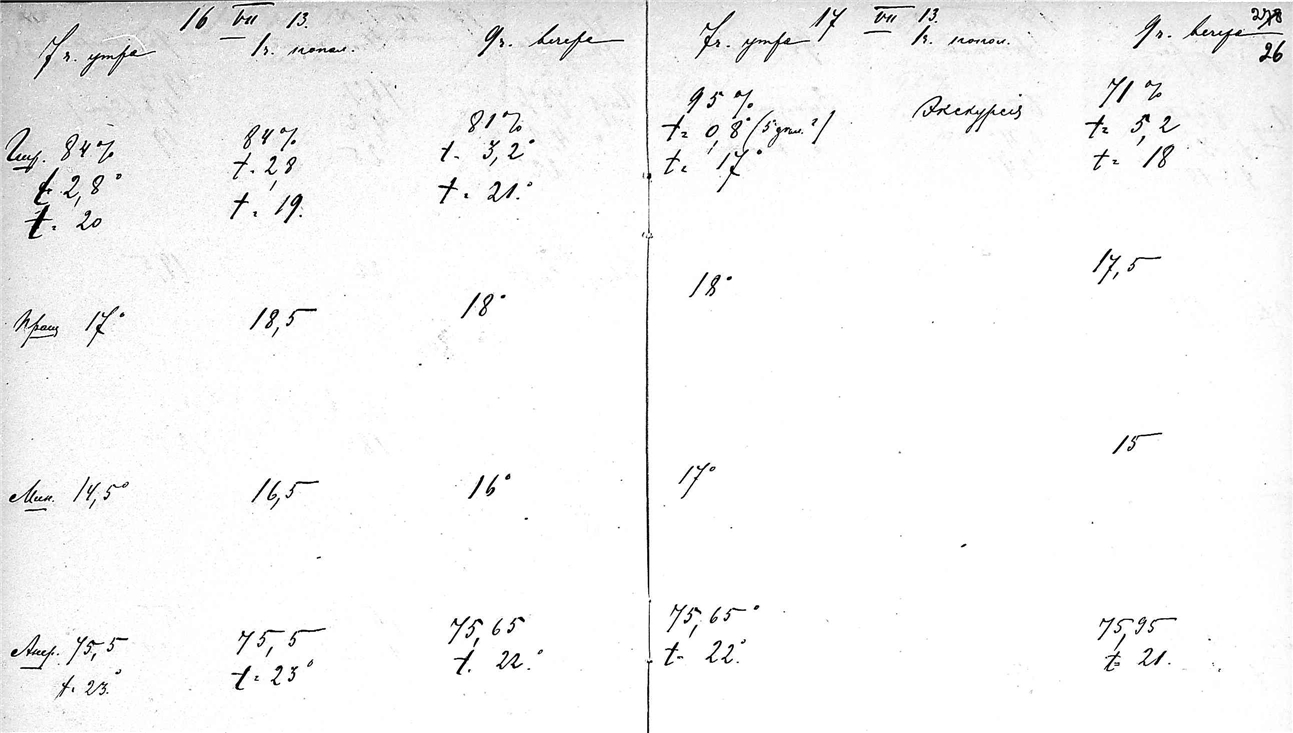 16 VII 13.
7 ч. утра 1 ч. попол. 9 ч. вечера
Гигр. 84% 84% 81%
t. 2,8° t. 2,8 t. 3,2°
t. 20 t. 19. t. 21.°
Пращ 17° 18,5 18°
Мин. 14,5° 16,5 16°
Анер. 75,5 75,5 75,65
t. 23.° t. 23° t. 22.°
17 VII 13. 278
7 ч. утра 1 ч. попол. 9 ч. вечера 26
95% Экскурсія 71%
t= 0,8° t= 5,2
t= 17° t= 18
18° 17,5
17° 15
75,65° 75,95
t= 22.° t= 21.